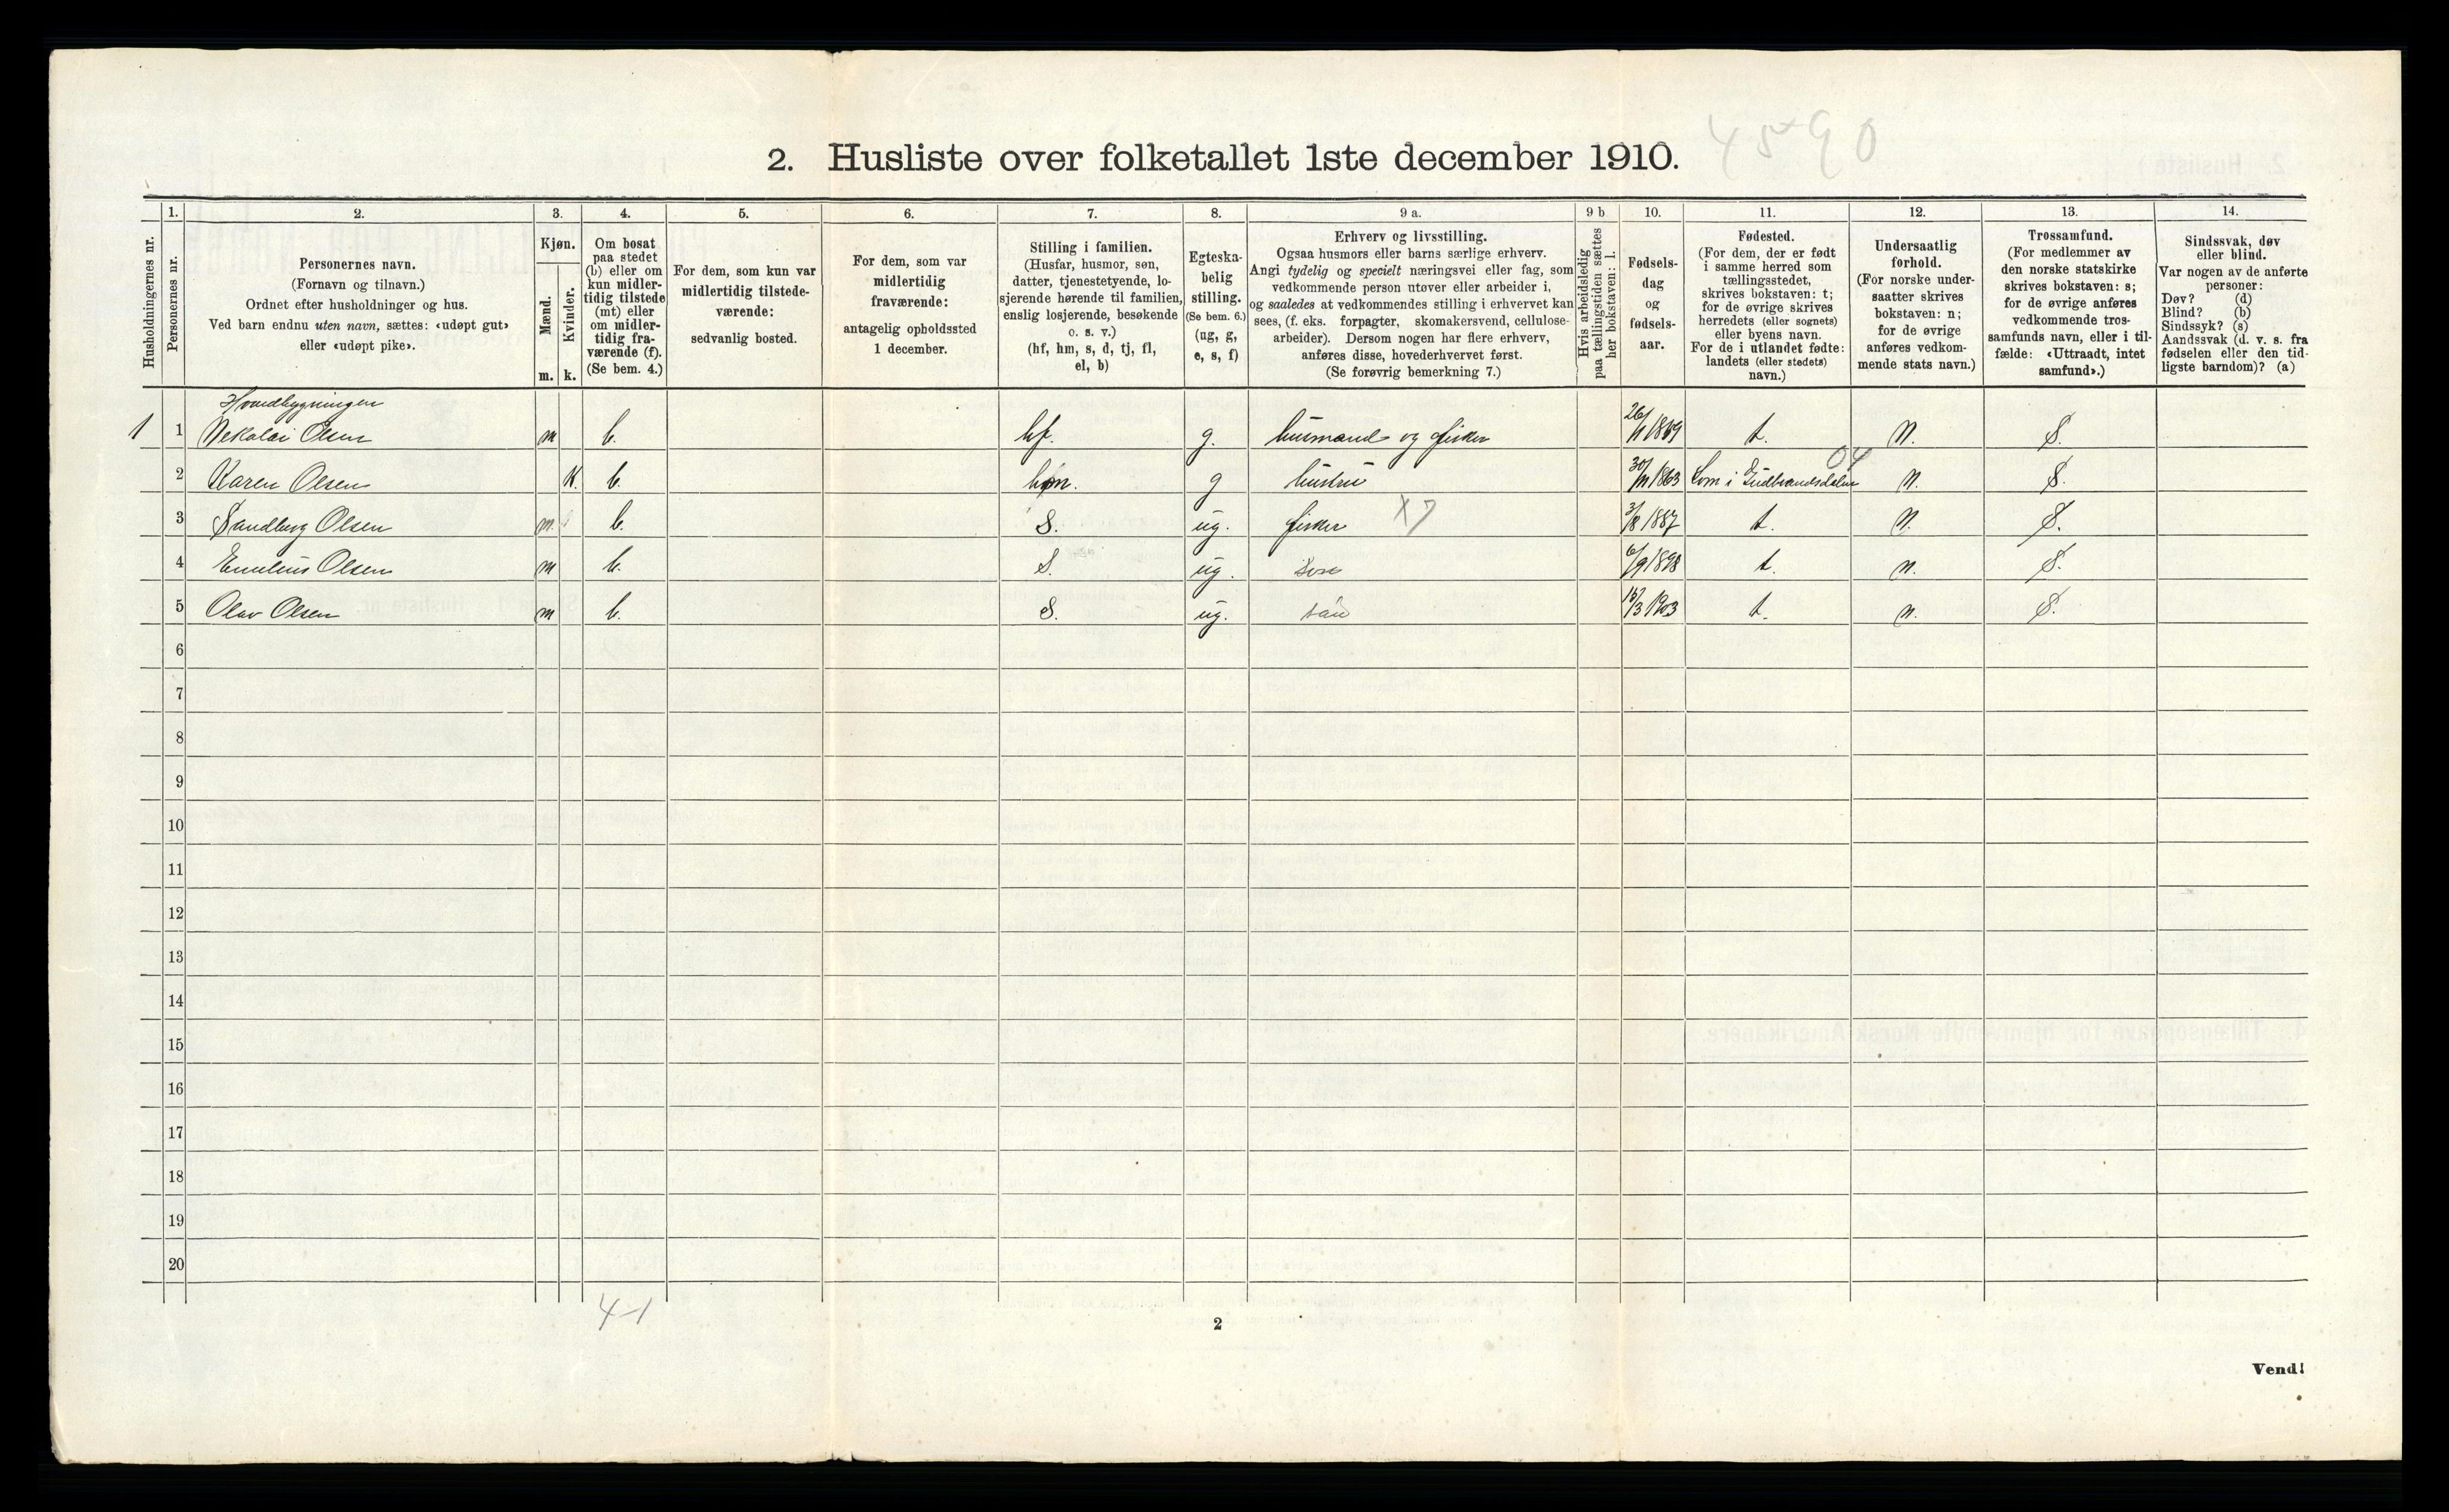 45-90
2. Husliste over folketallet 1ste december 1910.
1. 2. 3. 4. 5. 6. 7. 8. 9 a. 9 b 10. 11. 12. 13. 14.
Husholdningernes nr.
Personernes nr.
Personernes navn.
(Fornavn og tilnavn.)
Ordnet efter husholdninger og hus.
Ved barn endnu uten navn, sættes: «udøpt gut»
eller «udøpt pike».
Kjøn.
Mænd.
Kvinder.
m. k.
Om bosat
paa stedet
(b) eller om
kun midler-
tidig tilstede
(mt) eller
om midler-
tidig fra-
værende (f).
(Se bem. 4.)
For dem, som kun var
midlertidig tilstede-
værende:
sedvanlig bosted.
For dem, som var
midlertidig
fraværende:
antagelig opholdssted
1 december.
Stilling i familien.
(Husfar, husmor, søn,
datter, tjenestetyende, lo-
sjerende hørende til familien,
enslig losjerende, besøkende
o. s. v.)
(hf, hm, s, d, tj, fl,
el, b)
Egteska-
belig
stilling.
(Se bem. 6.)
(ug, g,
e, s, f)
Erhverv og livsstilling.
Ogsaa husmors eller barns særlige erhverv.
Angi tydelig og specielt næringsvei eller fag, som
vedkommende person utøver eller arbeider i,
og saaledes at vedkommendes stilling i erhvervet kan
sees, (f. eks. forpagter, skomakersvend, cellulose-
arbeider). Dersom nogen har flere erhverv,
anføres disse, hovederhvervet først.
(Se forøvrig bemerkning 7.)
Hvis arbeidsledig
paa tællingstiden sættes
her bokstaven: l.
Fødsels-
dag
og
fødsels-
aar.
Fødested.
(For dem, der er født
i samme herred som
tællingsstedet,
skrives bokstaven: t;
for de øvrige skrives
herredets (eller sognets)
eller byens navn.
For de i utlandet fødte:
landets (eller stedets)
navn.)
Undersaatlig
forhold.
(For norske under-
saatter skrives
bokstaven: n;
for de øvrige
anføres vedkom-
mende stats navn.)
Trossamfund.
(For medlemmer av
den norske statskirke
skrives bokstaven: s;
for de øvrige anføres
vedkommende tros-
samfunds navn, eller i til-
fælde: «Uttraadt, intet
samfund».)
Sindssvak, døv
eller blind.
Var nogen av de anførte
personer:
Døv? (d)
Blind? (b)
Sindssyk? (s)
Aandssvak (d. v. s. fra
fødselen eller den tid-
ligste barndom)? (a)
Hovedbygningen
1 1 Nekolai Olsen m b. hf. g. husmand og fisker 26/11 1869 t. n. S.
04
2 Karen Olsen K. b. hm. g hustru 30/11 1863 Lom i Gudbrandsdalen n. S.
3 Sandberg Olsen m b. S. ug. fisker X7 3/8 1887 t. n. S.
4 Emelius Olsen m b. S. ug. 6/9 1898 t. n. S.
5 Olav Olsen m b. S. ug. 16/3 1903 t. n. S.
6
7
8
9
10
11
12
13
14
15
16
17
18
19
20
4-1
2
Vend!